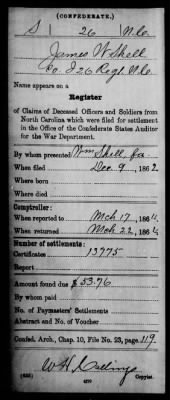 (CONFEDERATE.)
S 26 N.C.
James W. Shell
Co. I 26 Regt. N.C.
Name appears on a
Register
of Claims of Deceased Officers and Soldiers from
North Carolina which were filed for settlement
in the Office of the Confederate States Auditor
for the War Department.
By whom presented Wm Shell, fa.
When filed Dec 9, 1862
Where born
Where died
Comptroller:
When reported to Mch 17, 186
When returned Mch 22, 186
Number of settlements:
Certificates 13775
Report
Amount found due $53.76
By whom paid
No. of Paymasters' Settlements
Abstract and No. of Voucher
Confed. Arch., Chap. 10, File No. 23, page 119
W H
Copyist.